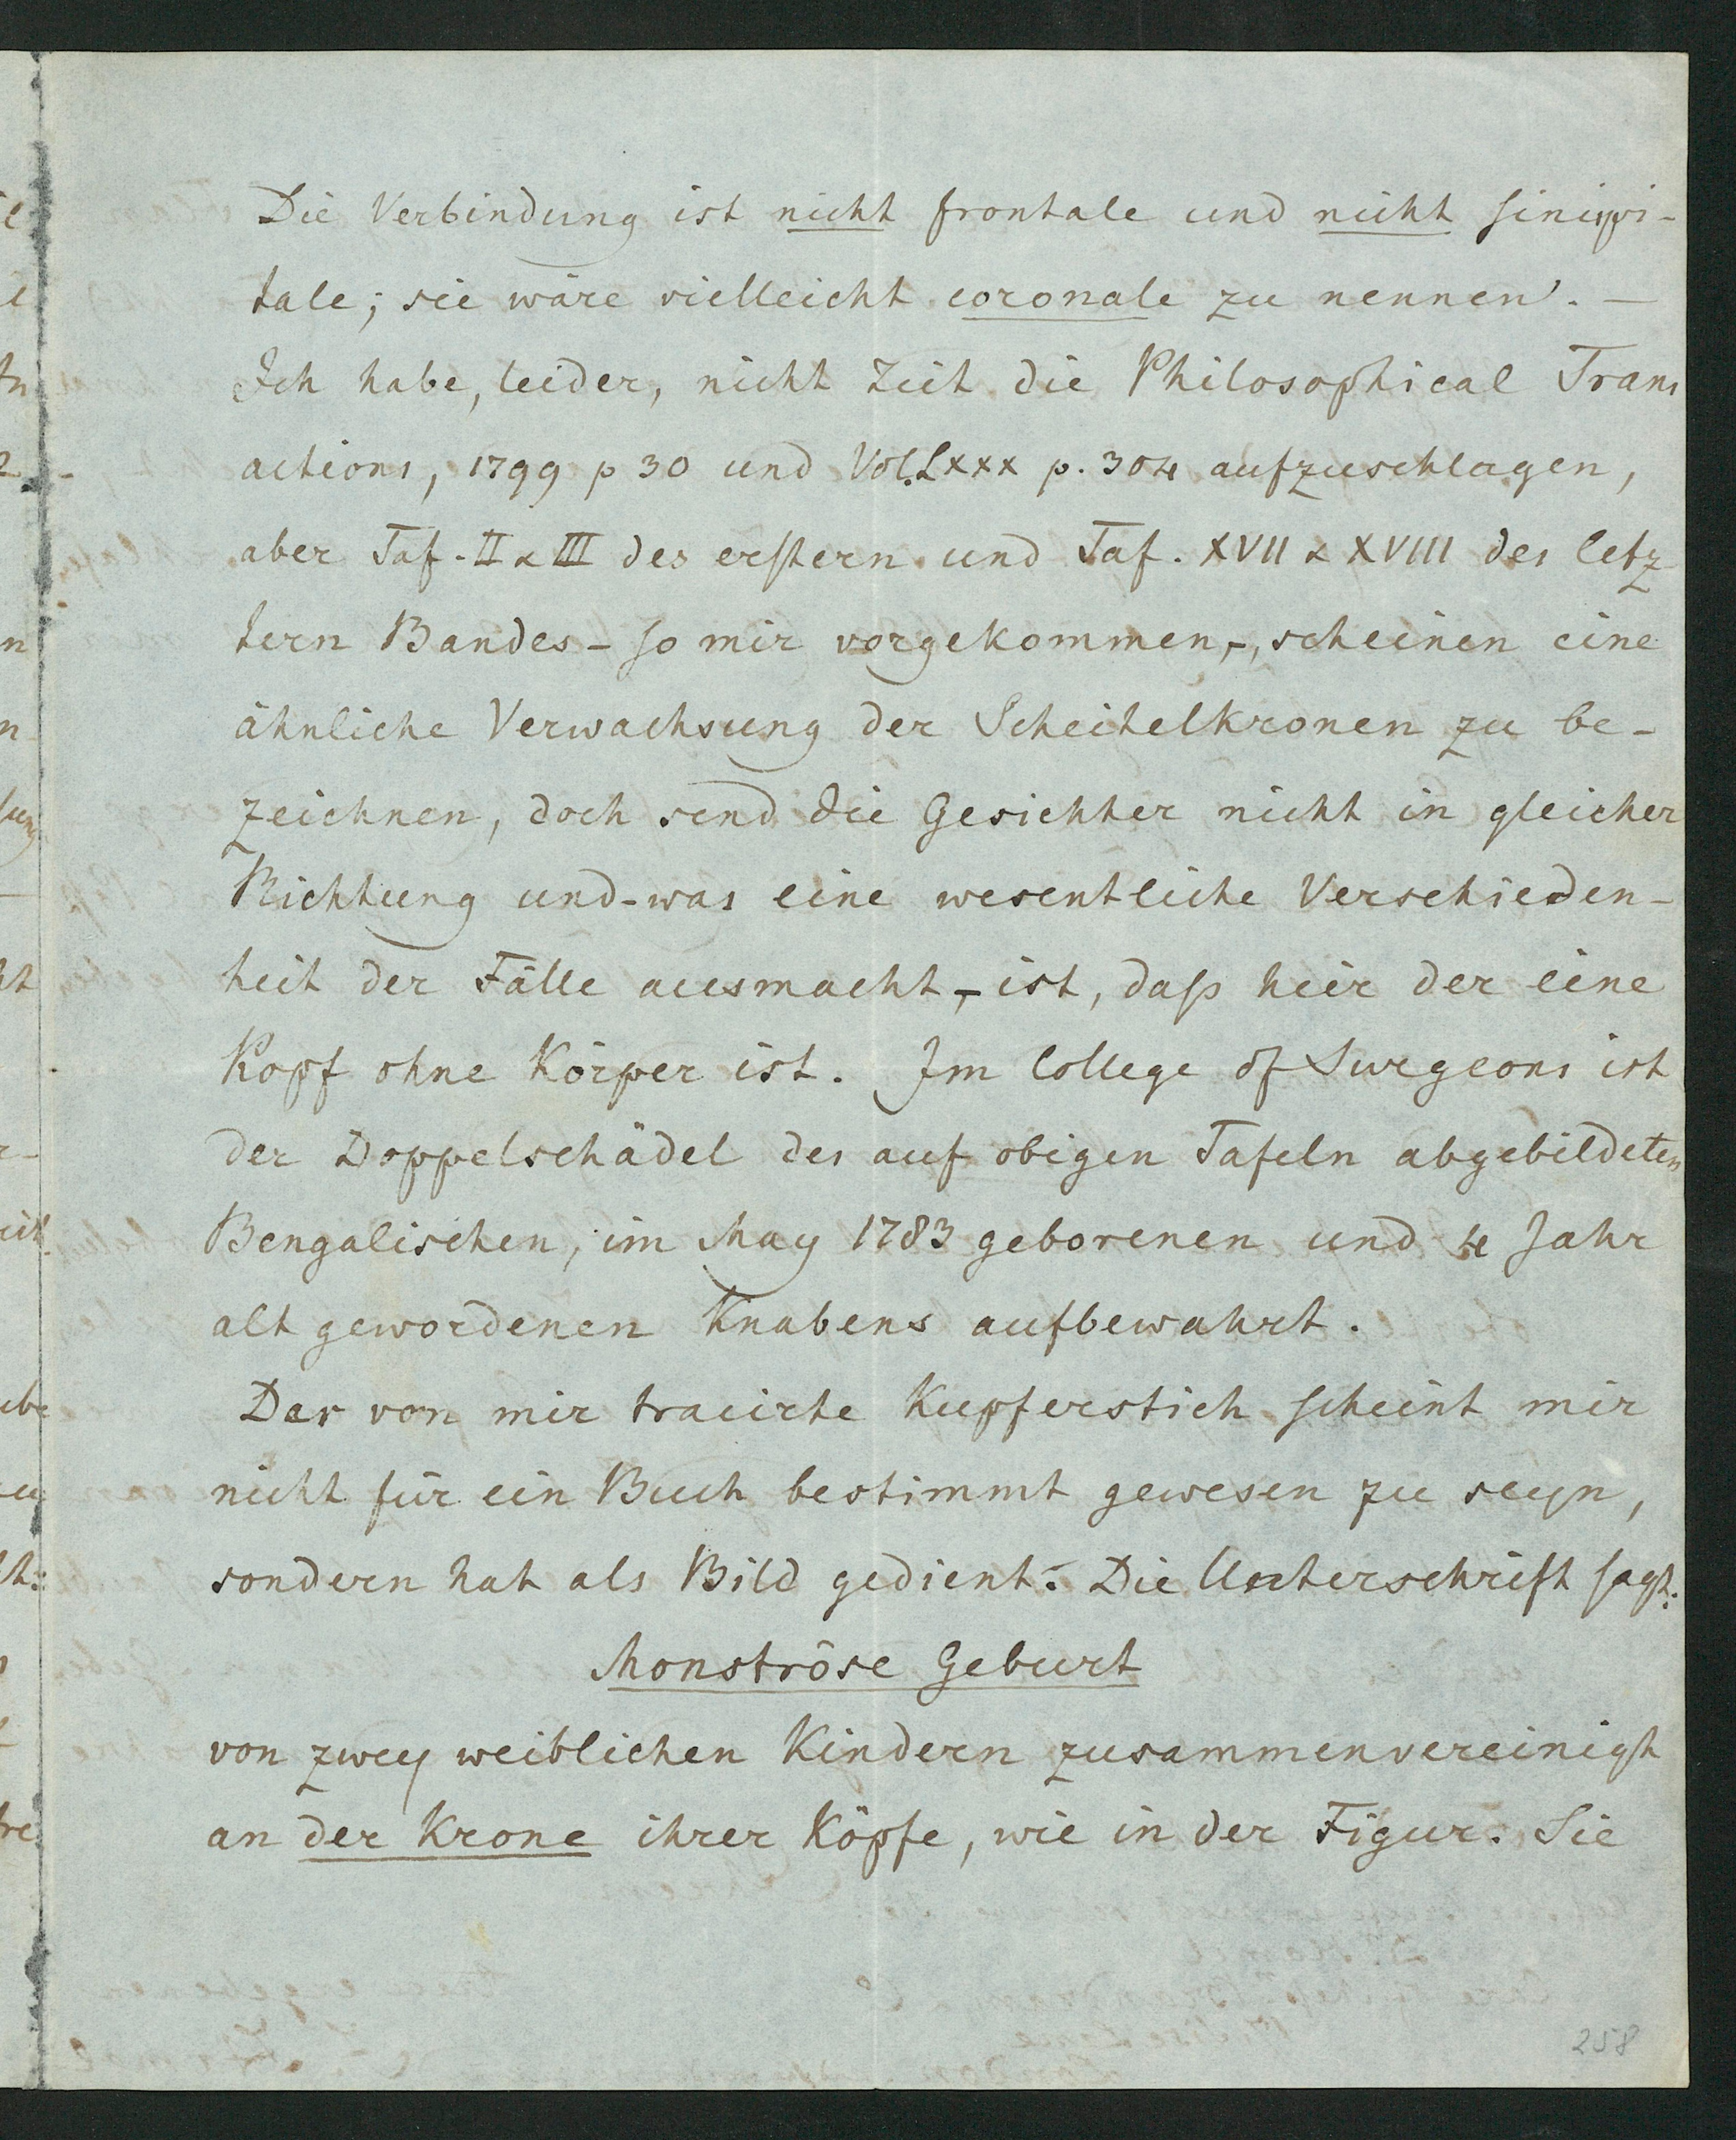 Die Verbindung ist nicht frontale und nicht sincipi-
tale; sie wäre vielleicht coronale zu nennen. —
Ich habe, leider, nicht Zeit die Philosophical Trans
actions, 1799 p 30 und Vol. LXXX p. 304 aufzuschlagen,
aber Taf. II & III des erstern und Taf. XVII & XVIII des letz
tern Bandes – so mir vorgekommen, –, scheinen eine
ähnliche Verwachsung der Scheitelkronen zu be-
zeichnen, doch send die Gesichter nicht in gleicher
Richtung und – was eine wesentliche Verschieden-
heit der Fälle ausmacht, – ist, daß hier der eine
Kopf ohne Körper ist. Im College of Surgeons ist
der Doppelschädel des auf obigen Tafeln abgebildeten
Bengalischen, im May 1783 geborenen und 4 Jahr
alt gewordenen Knabens aufbewahrt.
Der von mir tracirte Kupferstich scheint mir
nicht für ein Buch bestimmt gewesen zu seyn,
sondern hat als Bild gedient. Die Unterschrift sagt:
Monströse Geburt
von zwey weiblichen Kindern zusammenvereinigt
an der Krone ihrer Köpfe, wie in der Figur. Sie
258